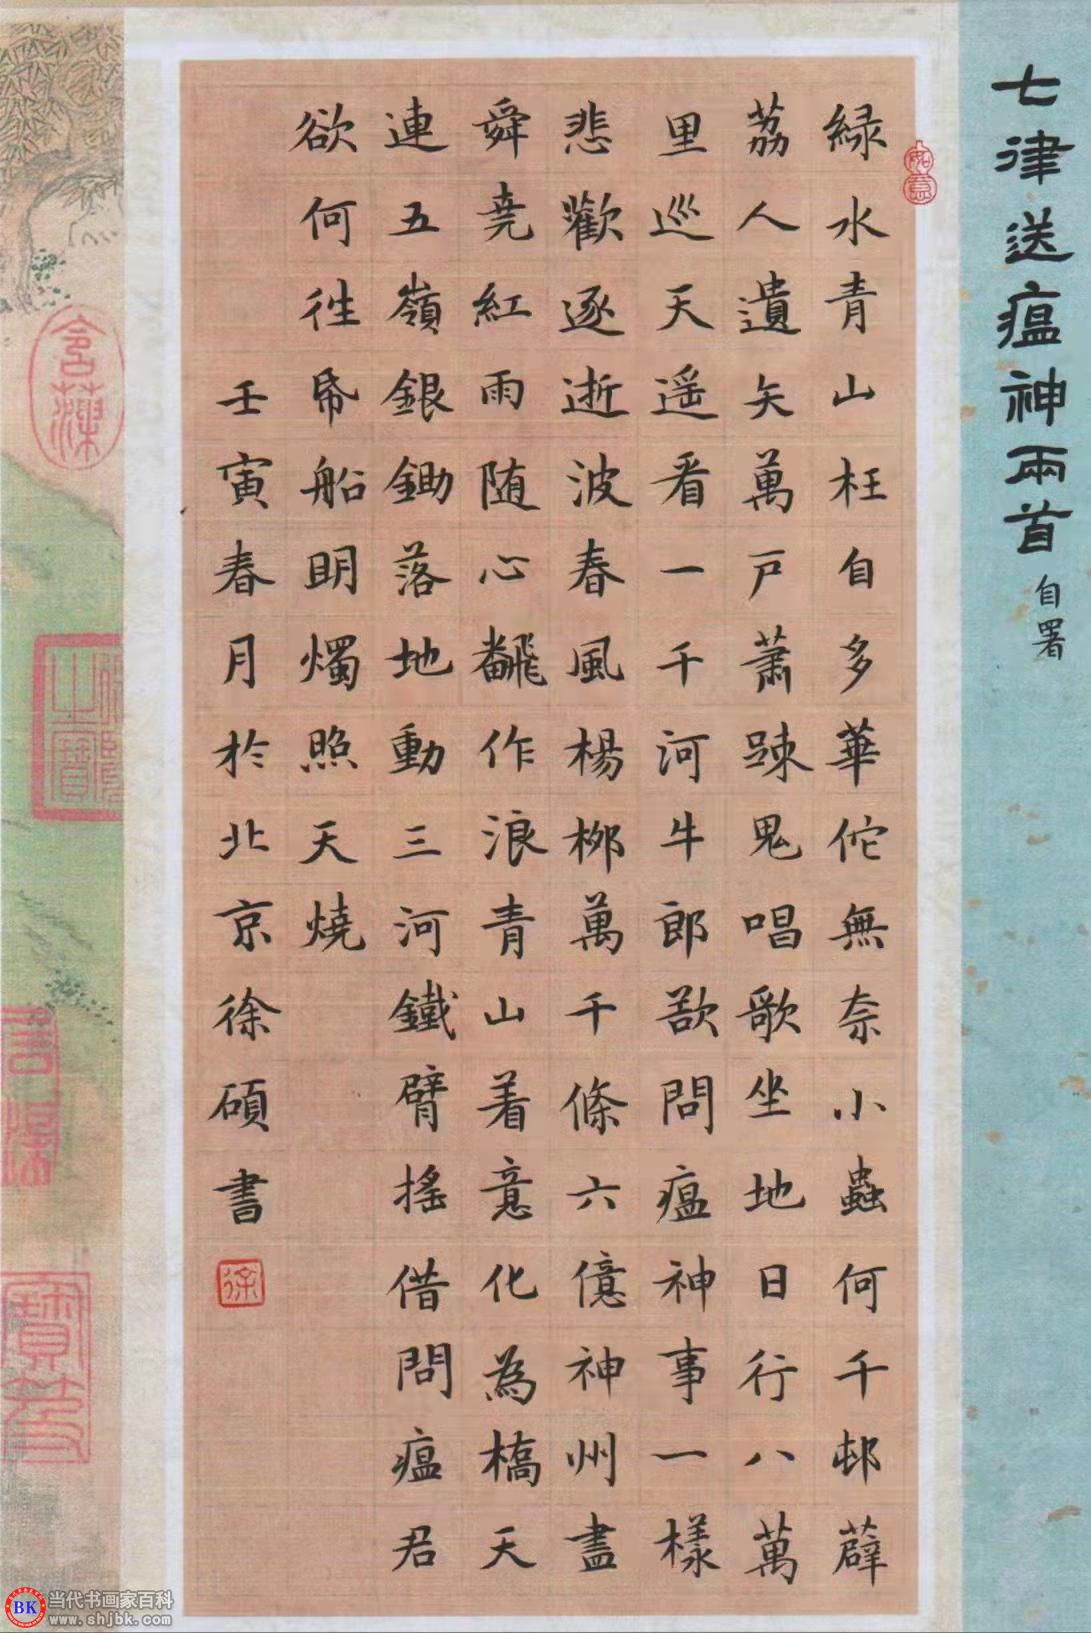 七律送瘟神兩首
自署
如意
緑水青山枉自多華佗無奈小蟲何千邨薜
荔人遺矢萬戸蕭踈鬼唱歌坐地日行八萬
里巡天遥看一千河牛郎欲問瘟神事一樣
悲歡逐逝波春風楊柳萬千條六億神州盡
舜堯紅雨随心飜作浪青山着意化為橋天
連五嶺銀鋤落地動三河鐵臂搖借問瘟君
欲何往帋船明燭照天燒
壬寅春月於北京徐碩書
徐
BK
当代书画家百科
www.shjbk.com